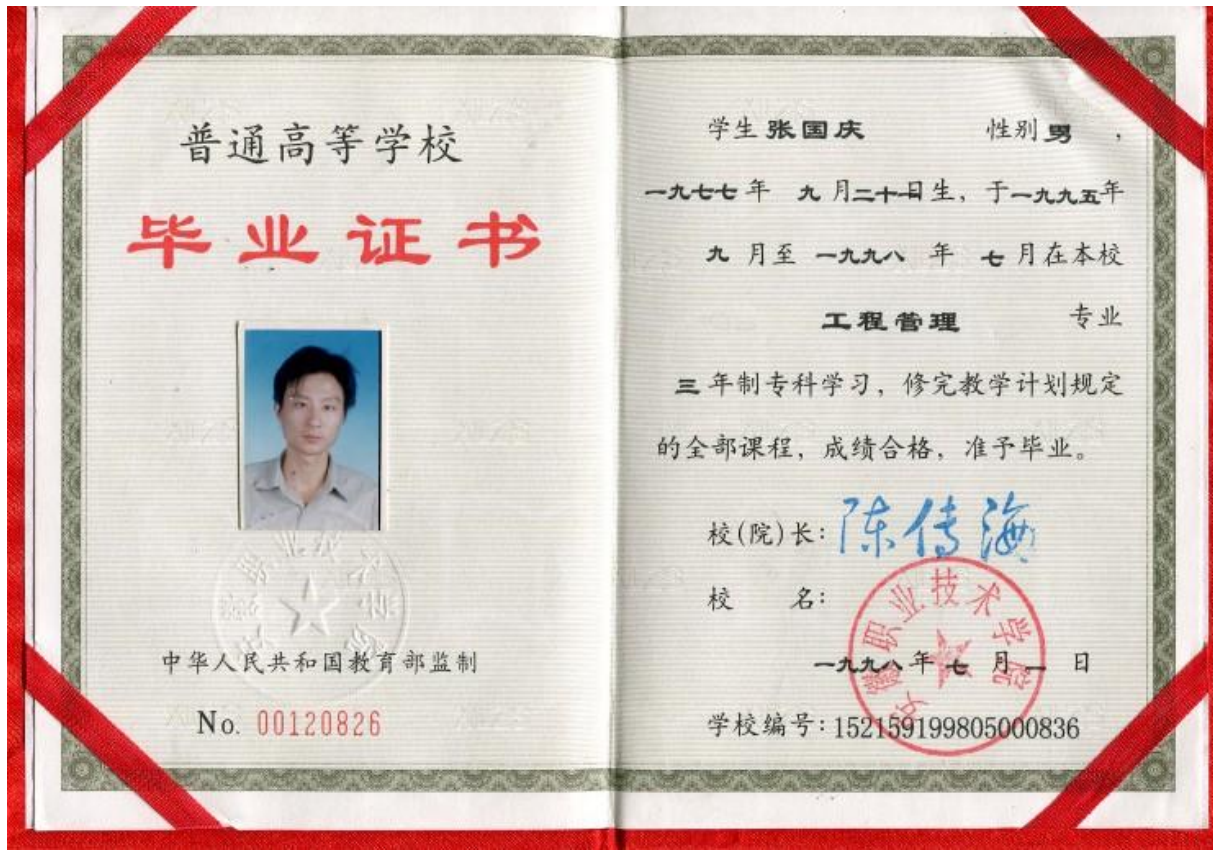 普通高等学校
毕业证书
中华人民共和国教育部监制
No. 00120826
学生 张国庆 性别 男 ，
一九七七 年 九 月 二十 日生，于 一九九五 年
九 月至 一九九八 年 七 月在本校
工程管理 专业
三 年制专科学习，修完教学计划规定
的全部课程，成绩合格，准予毕业。
校(院)长：陈传海
校 名：
安徽职业技术学院
一九九八 年 七 月 一 日
学校编号：152159199805000836